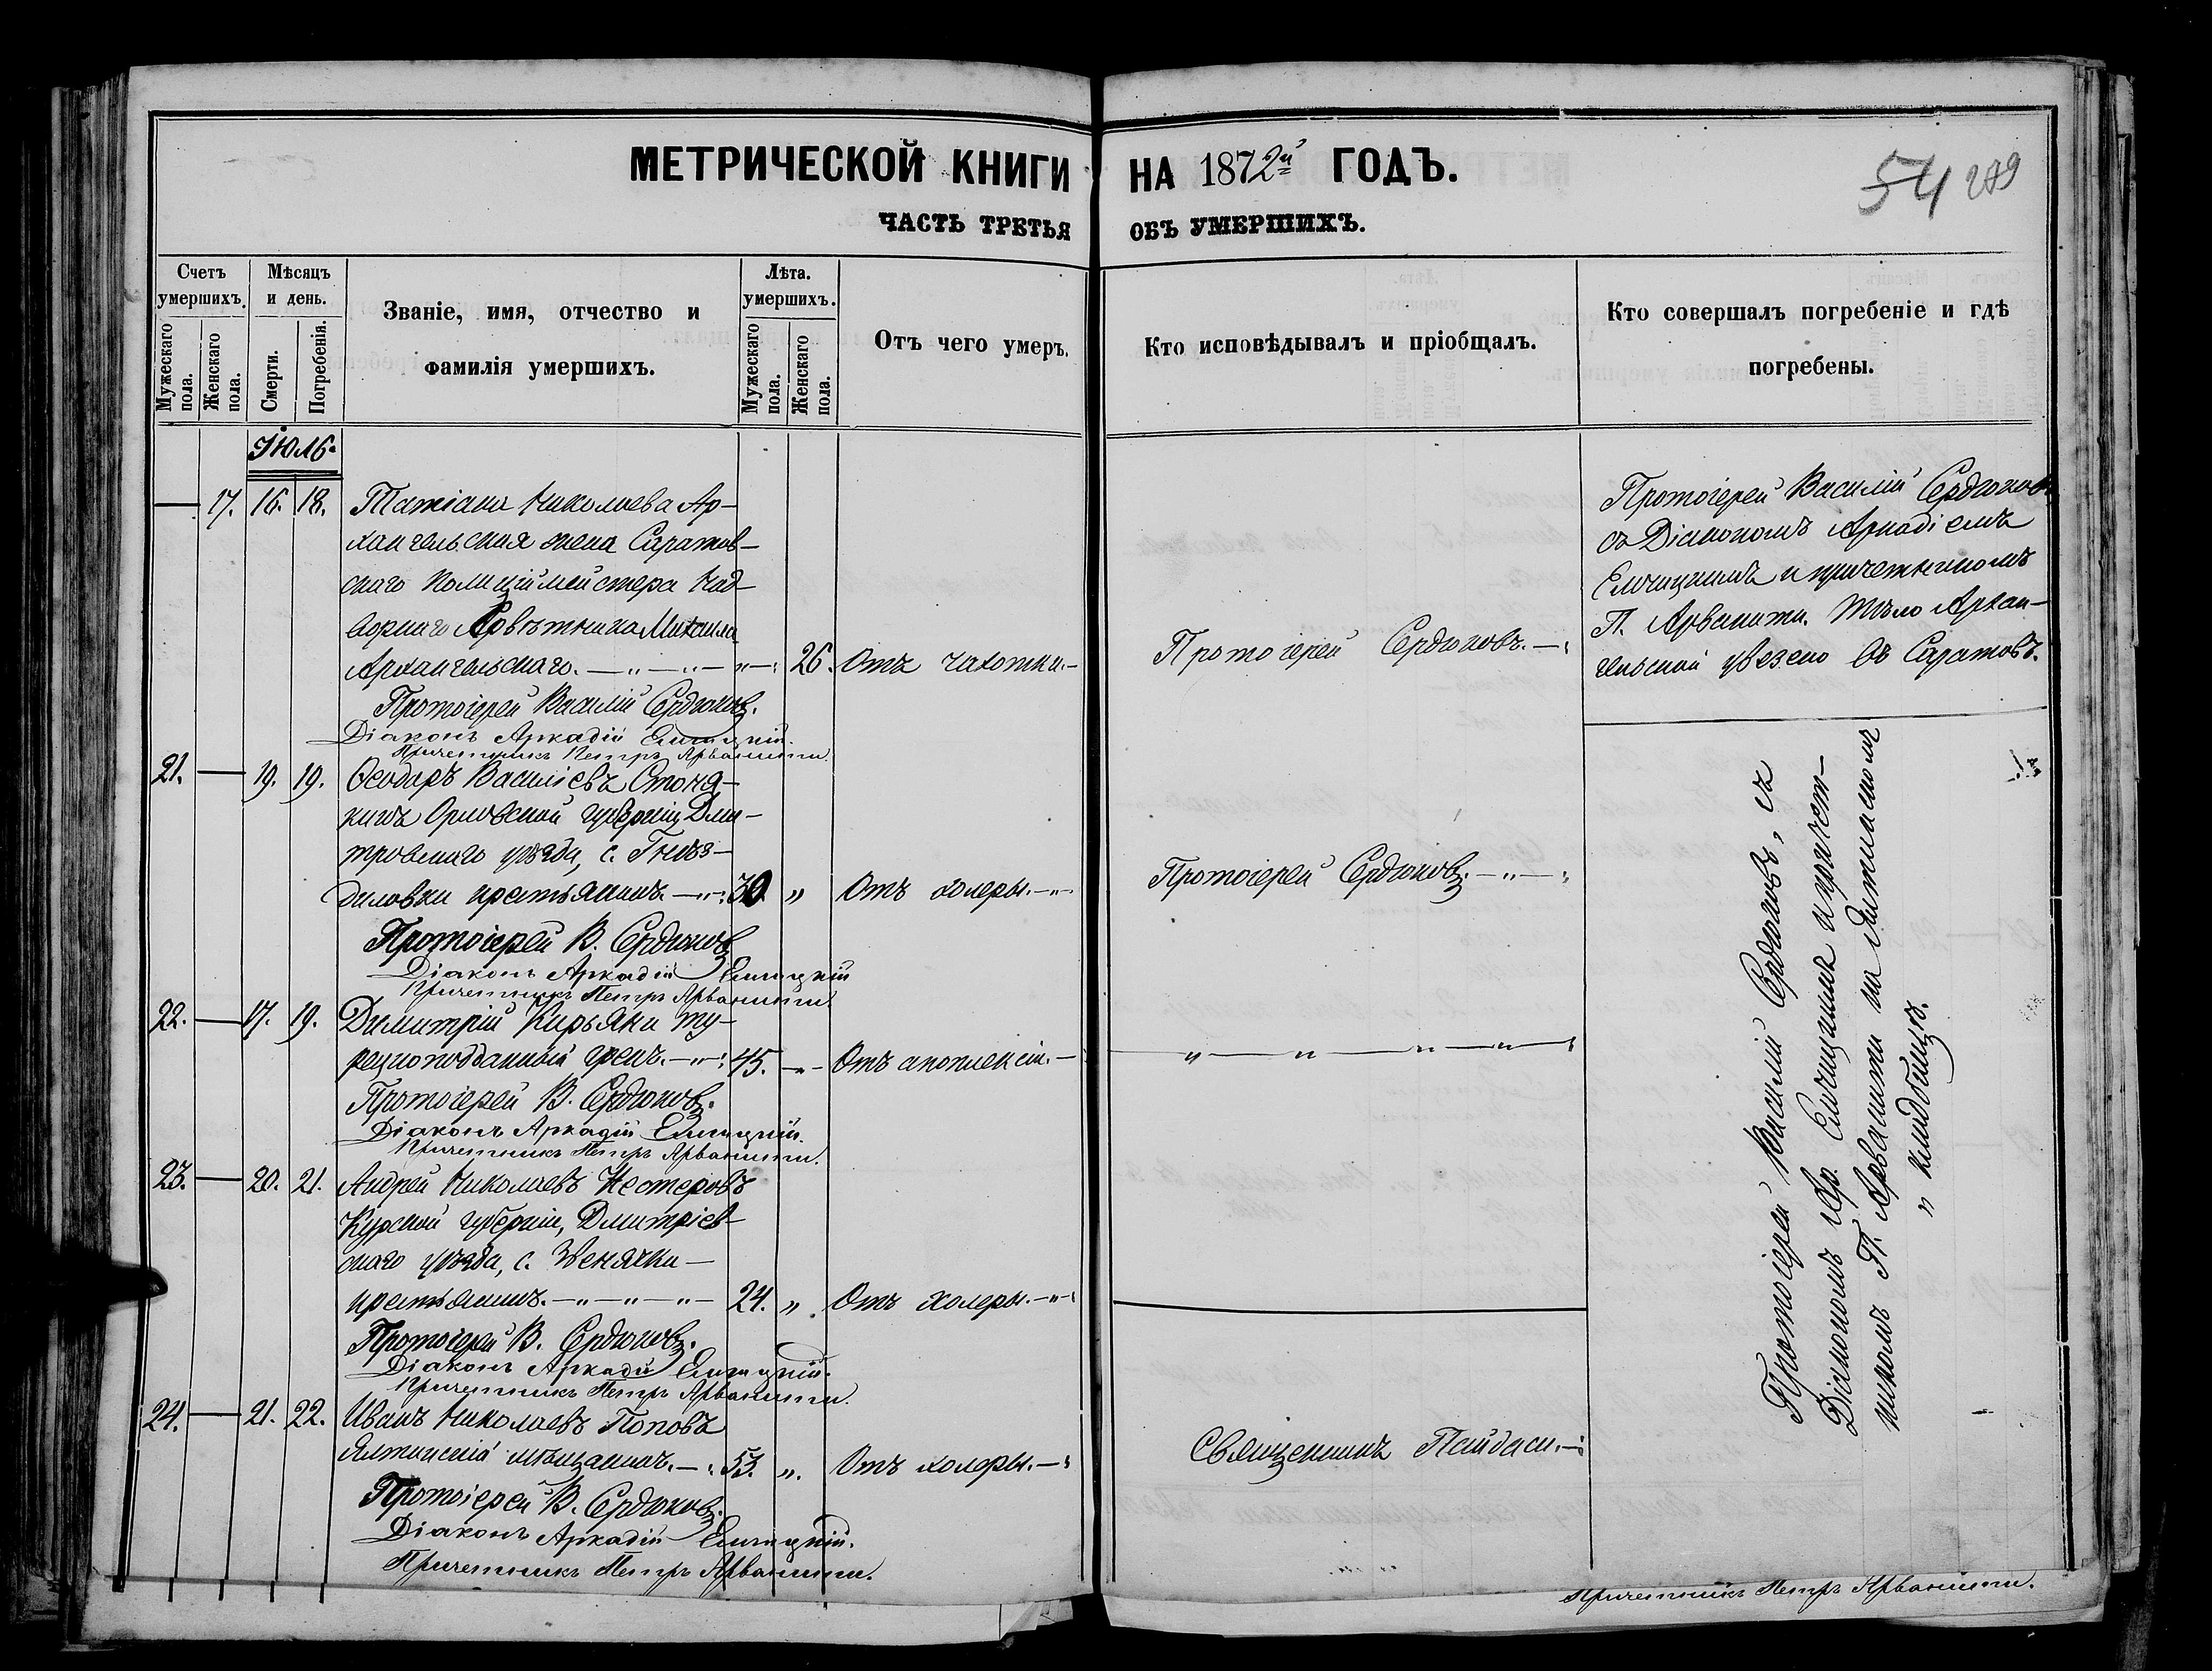 МЕТРИЧЕСКОЙ КНИГИ НА 1872й ГОДЪ.
54 289
ЧАСТЬ ТРЕТЬЯ ОБЪ УМЕРШИХЪ.
Счетъ умершихъ.
Мужескаго пола.
Женскаго пола.
Мѣсяцъ и день.
Смерти.
Погребенія.
Званіе, имя, отчество и
фамилія умершихъ.
Лѣта.
умершихъ.
Мужескаго пола.
Женскаго пола.
Отъ чего умеръ.
Кто исповѣдывалъ и пріобщалъ.
Кто совершалъ погребеніе и гдѣ
погребены.
Іюль.
17. 16. 18. Татіана Николаева Ар-
хангельская жена Саратов-
скаго полиціймейстера Над-
ворнаго Совѣтника Михаила
Архангельскаго. 26. Отъ чахотки.
Протоіерей Сердюковъ.
Протоіерей Василій Сердюковъ
съ Діакономъ Аркадіемъ
Елчицкимъ и причетникомъ
П. Арванити. Тѣло Архан-
гельской увезено въ Саратовъ.
Протоіерей Василій Сердюковъ.
Діаконъ Аркадій Елчицкій.
Причетникъ Петръ Арванити.
21. 19. 19. Ѳеодоръ Василіевъ Стоня-
кинъ Орловской губерніи Дми-
тровскаго уѣзда, с. Гнѣз-
диловки крестьянинъ. 30. " Отъ холеры.
Протоіерей Сердюковъ.
Протоіерей В. Сердюковъ
Діаконъ Аркадій Елчицкій
Причетникъ Петръ Арванити.
22. 17. 19. Димитрій Кирьяки ту-
рецкоподданный грекъ. 45. Отъ апоплексіи.
Протоіерей В. Сердюковъ.
Діаконъ Аркадій Елчицкій.
Причетникъ Петръ Арванити.
23. 20. 21. Андрей Николаевъ Нестеровъ
Курской губерніи, Дмитріев-
скаго уѣзда, с. Звенячки
крестьянинъ. 24. " Отъ холеры.
Протоіерей В. Сердюковъ.
Діаконъ Аркадій Елчицкій.
Причетникъ Петръ Арванити.
24. 21. 22. Иванъ Николаевъ Поповъ
Ялтинскій мѣщанинъ. 53. " Отъ холеры.
Священникъ Псиндаси.
Протоіерей В. Сердюковъ.
Діаконъ Аркадій Елчицкій.
Причетникъ Петръ Арванити.
Протоіерей Василій Сердюковъ, съ
Діакономъ Ар. Елчицкимъ и причет-
никомъ П. Арванити на Ялтинскомъ
" кладбищѣ.
Причетникъ Петръ Арванити.